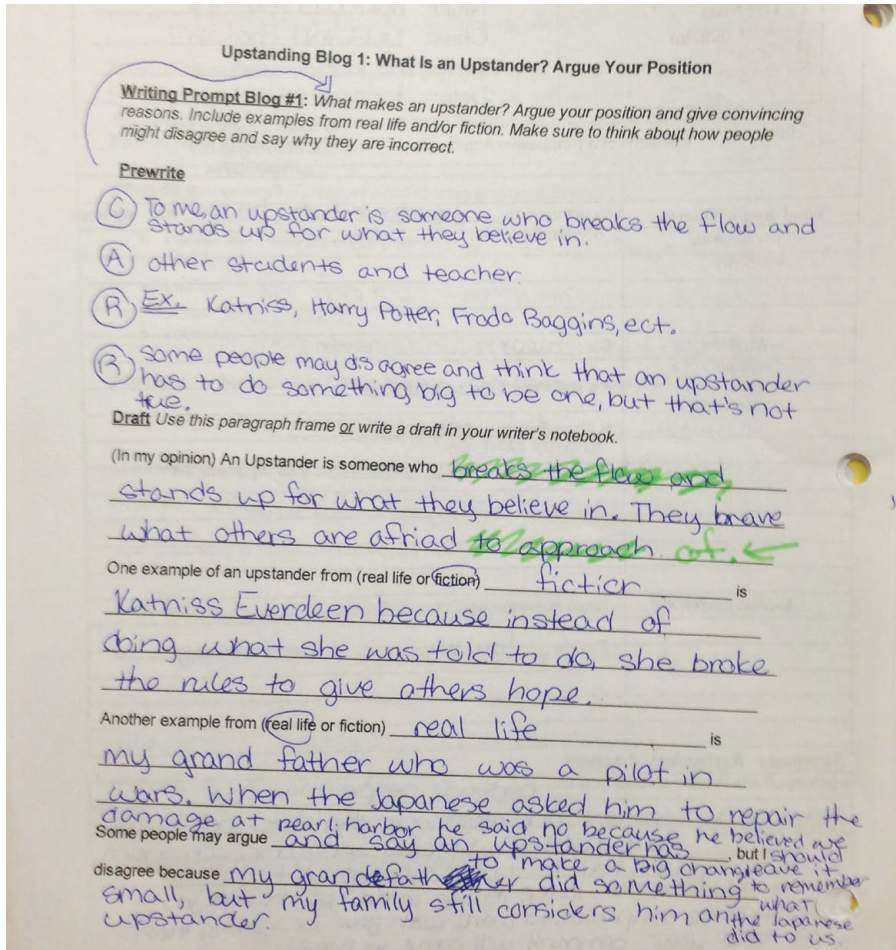 Upstanding Blog 1: What Is an Upstander? Argue Your Position
Writing Prompt Blog #1: What makes an upstander? Argue your position and give convincing
reasons. Include examples from real life and/or fiction. Make sure to think about how people
might disagree and say why they are incorrect.
Prewrite
C To me, an upstander is someone who breaks the flow and
stands up for what they believe in.
A other students and teacher.
R Ex. Katniss, Harry Potter, Frodo Baggins, ect.
R Some people may disagree and think that an upstander
has to do something big to be one, but that's not
true.
Draft Use this paragraph frame or write a draft in your writer's notebook.
(In my opinion) An Upstander is someone who breaks the flow and
stands up for what they believe in. They brave
what others are afriad to approach of.
One example of an upstander from (real life or fiction) fiction is
Katniss Everdeen because instead of
doing what she was told to do, she broke
the rules to give others hope.
Another example from (real life or fiction) real life is
my grand father who was a pilot in
wars. When the Japanese asked him to repair the
damage at pearl harbor he said no because he believed we
should leave it to remember what the Japanese did to us.
Some people may argue and say an upstander has
to make a big change, but I
disagree because my grandefather did something
small, but my family still considers him an
upstander.